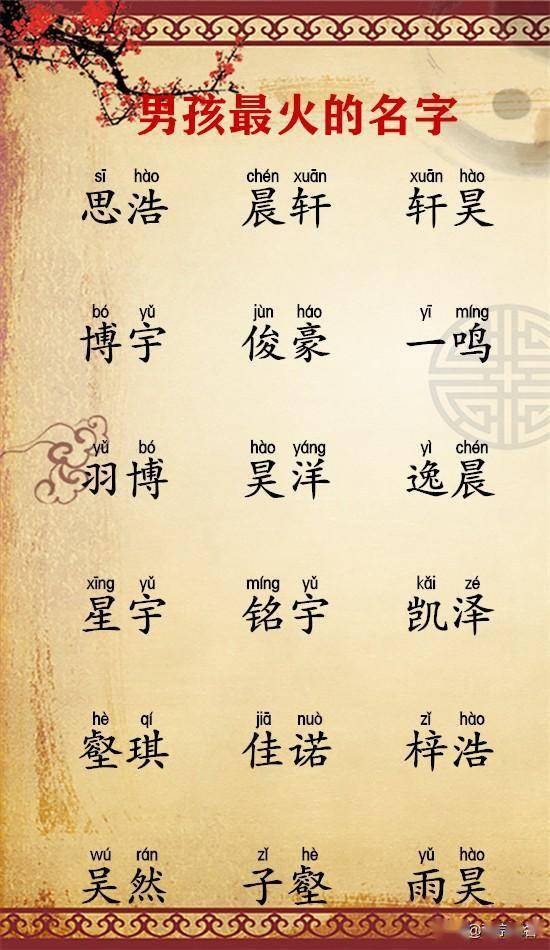 男孩最火的名字
sī hào chén xuān xuān hào
思浩 晨轩 轩昊
bó yǔ jùn háo yī míng
博宇 俊豪 一鸣
yǔ bó hào yáng yì chén
羽博 昊洋 逸晨
xīng yǔ míng yǔ kǎi zé
星宇 铭宇 凯泽
hè qí jiā nuò zǐ hào
壑琪 佳诺 梓浩
wú rán zǐ hè yǔ hào
吴然 子壑 雨昊